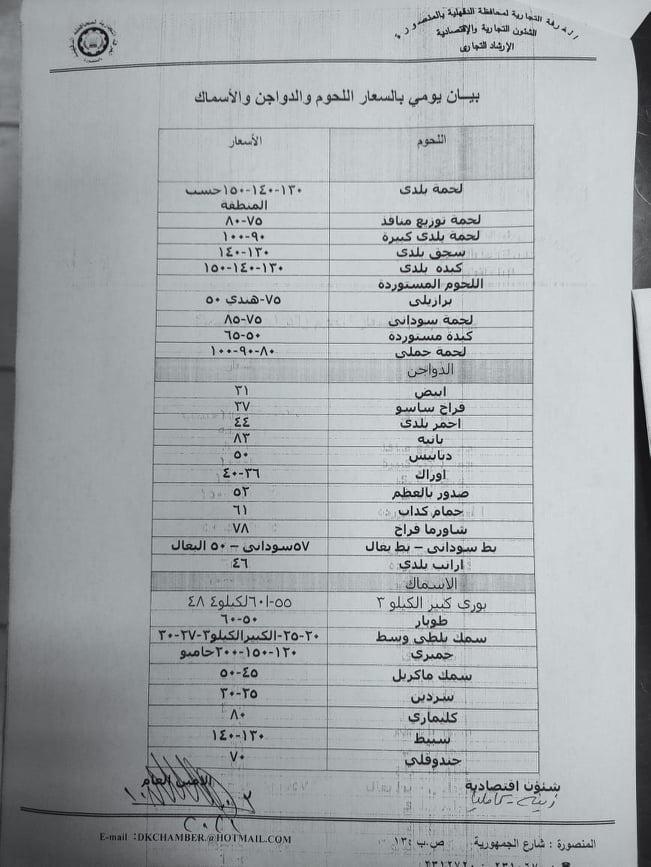 الغرفة التجارية لمحافظة الدقهلية بالمنصورة
الشئون التجارية والإقتصادية
الإرشاد التجارى
بيـــان يومي بالسعار اللحوم والدواجن والأسماك
اللحوم الأسعار
لحمة بلدى ١٣٠-١٤٠-١٥٠حسب المنطقة
لحمة توزيع منافذ ٧٥-٨٠
لحمة بلدى كبيرة ٩٠-١٠٠
سجق بلدى ١٣٠-١٤٠
كبده بلدى ١٣٠-١٤٠-١٥٠
اللحوم المستوردة
برازيلى ٧٥-هندي ٥٠
لحمة سودانى ٧٥-٨٥
كبدة مستوردة ٥٠-٦٥
لحمة جملى ٨٠-٩٠-١٠٠
الدواجن
ابيض ٣١
فراخ ساسو ٣٧
احمر بلدى ٤٤
بانيه ٨٣
دبابيس ٥٠
اوراك ٣٦-٤٠
صدور بالعظم ٥٢
حمام كداب ٦١
شاورما فراخ ٧٨
بط سودانى – بط بغال ٥٧سودانى – ٥٠ البغال
ارانب بلدي ٤٦
الاسماك
بورى كبير الكيلو ٣ ٥٥-٦٠الكيلو٤ ٤٨
طوبار ٥٠-٦٠
سمك بلطى وسط ٢٠-٢٥-الكبيرالكيلو٣-٢٧-٣٠
جمبرى ١٢٠-١٥٠-٢٠٠جامبو
سمك ماكريل ٤٥-٥٠
سردين ٢٥-٣٠
كليمارى ٨٠
سبيط ١٣٠-١٤٠
جندوفلي ٧٠
شئون اقتصادية
الامين العام
E-mail :DKCHAMBER.@HOTMAIL.COM
المنصورة : شارع الجمهورية ص.ب ١٣٤